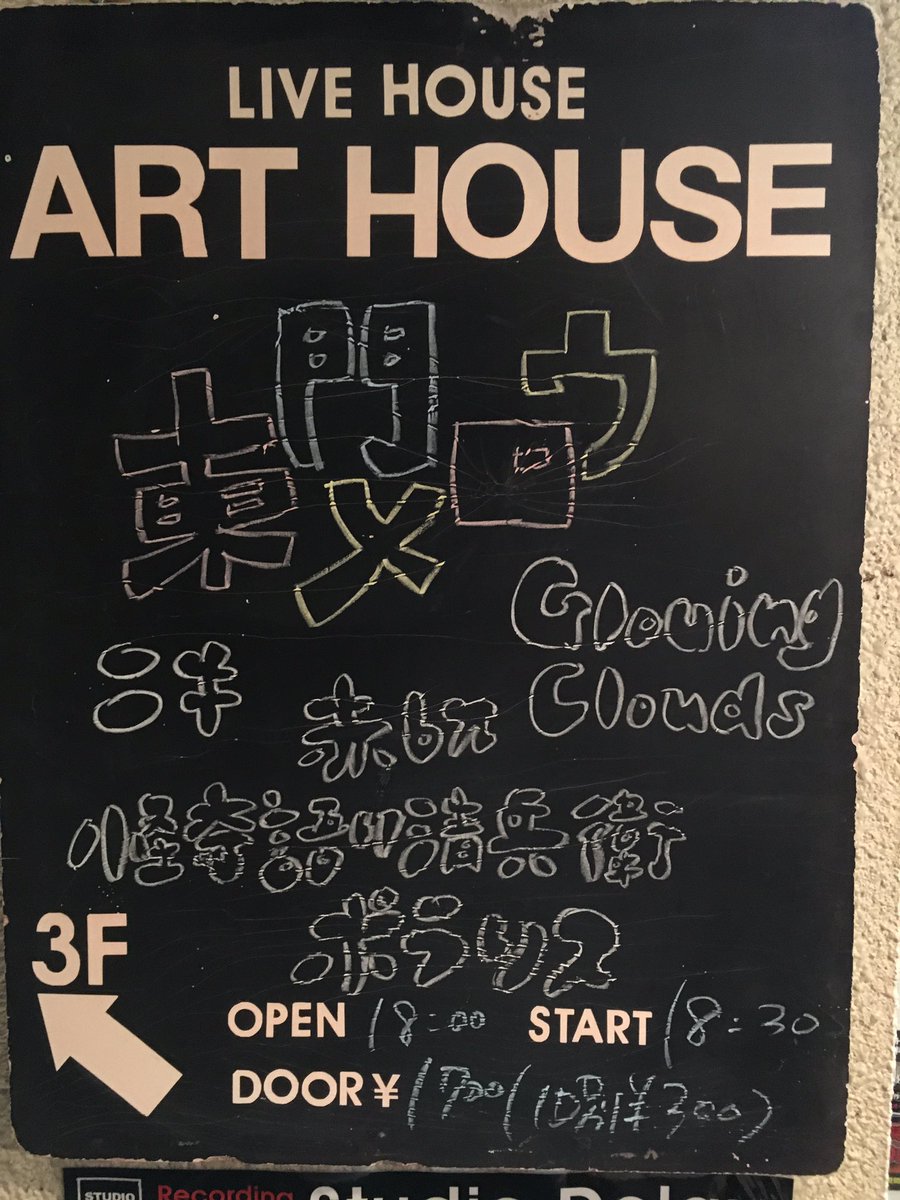 LIVE HOUSE
ART HOUSE
東門メロウ
Glowing
Clouds
怪奇語り清兵衛
ポラリス
3F
OPEN 18:00 START 18:30
DOOR ¥1700(1D別¥300)
STUDIO
Recording